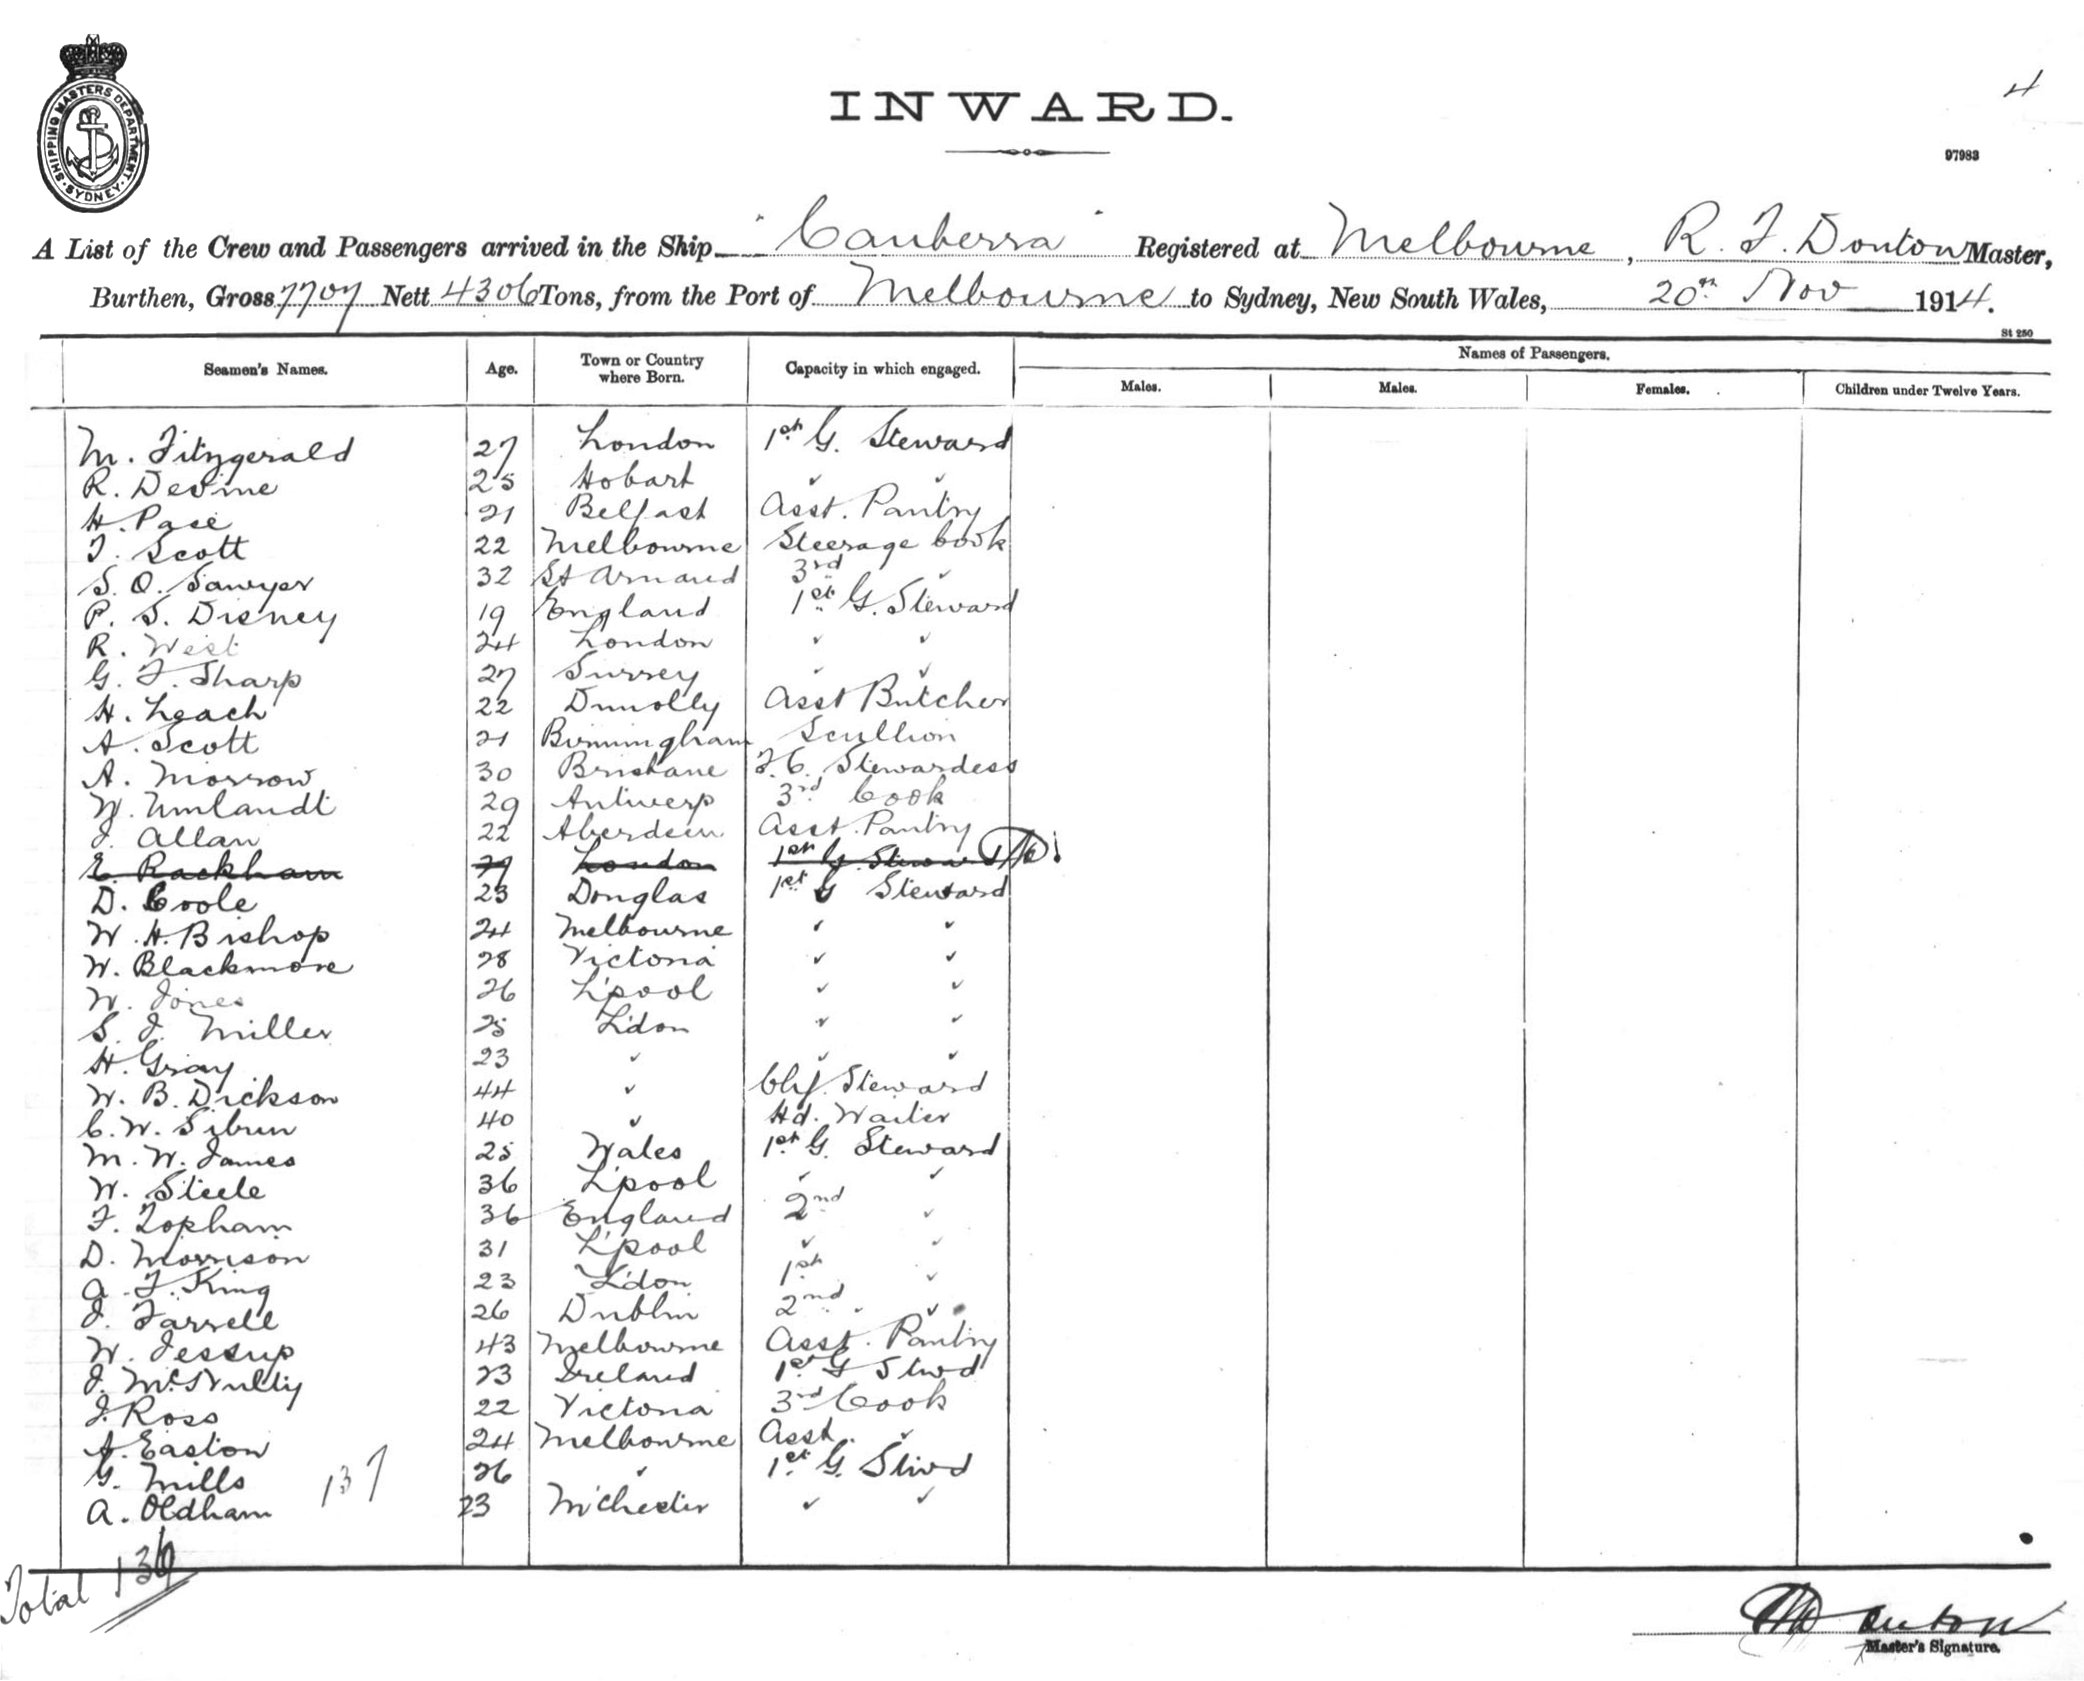 SHIPPING MASTERS DEPARTMENT. SYDNEY.
INWARD.
4
97983
A List of the Crew and Passengers arrived in the Ship "Canberra" Registered at Melbourne, R. F. Donton Master,
Burthen, Gross 7707 Nett 4306 Tons, from the Port of Melbourne to Sydney, New South Wales, 20th Nov 1914.
St 250
Seamen's Names. Age. Town or Country where Born. Capacity in which engaged. Names of Passengers.
Males. Males. Females. Children under Twelve Years.
M. Fitzgerald 27 London 1st G. Steward
R. Devine 25 Hobart " "
H. Pace 21 Belfast Asst. Pantry
T. Scott 22 Melbourne Steerage Cook
S. O. Sawyer 32 St Arnaud 3rd "
P. S. Disney 19 England 1st G. Steward
R. West 24 London " "
G. F. Sharp 27 Surrey " "
H. Leach 22 Dunolly Asst Butcher
A. Scott 21 Birmingham Scullion
A. Morrow 30 Brisbane F. C. Stewardess
W. Umlandt 29 Antwerp 3rd Cook
J. Allan 22 Aberdeen Asst. Pantry
E. Rackham 27 London 1st G. Steward
D. Coole 23 Douglas 1st G Steward
W. H. Bishop 24 Melbourne " "
W. Blackmore 28 Victoria " "
W. Jones 26 L'pool " "
S. J. Miller 25 L'don " "
H. Gray 23 " " "
W. B. Dickson 44 " Chf. Steward
C. W. Sibun 40 " Hd. Waiter
M. W. James 25 Wales 1st G. Steward
W. Steele 36 L'pool " "
F. Topham 36 England 2nd "
D. Morrison 31 L'pool " "
A. F. King 23 L'don 1st "
J. Farrell 26 Dublin 2nd "
W. Jessup 43 Melbourne Asst. Pantry
J. McNulty 23 Ireland 1st G Stwd
J. Ross 22 Victoria 3rd Cook
A. Easton 24 Melbourne Asst. "
G. Mills 26 " 1st G. Stwd
A. Oldham 23 M'chester " "
137
Total 136
Master's Signature.